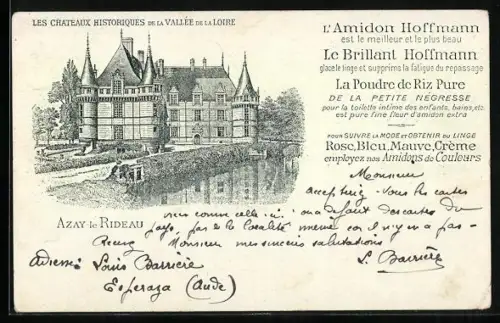 LES CHATEAUX HISTORIQUES DE LA VALLÉE DE LA LOIRE
L'Amidon Hoffmann
est le meilleur et le plus beau
Le Brillant Hoffmann
glace le linge et supprime la fatigue du repassage
La Poudre de Riz Pure
DE LA PETITE NÉGRESSE
pour la toilette intime des enfants, bains, etc.
est pure fine fleur d'amidon extra
POUR SUIVRE LA MODE ET OBTENIR DU LINGE
Rose, Bleu, Mauve, Crème
employez nos Amidons de Couleurs
AZAY-LE RIDEAU
Monsieur
accepteriez-vous les cartes
vues comme celle-ci; ou a defaut des cartes du
pays, pas de la localité même car il n'y en a pas-
Recevez Monsieur mes sincères salutations
Adresse: Louis Barrière
L. Barrière
Esperaza (Aude)